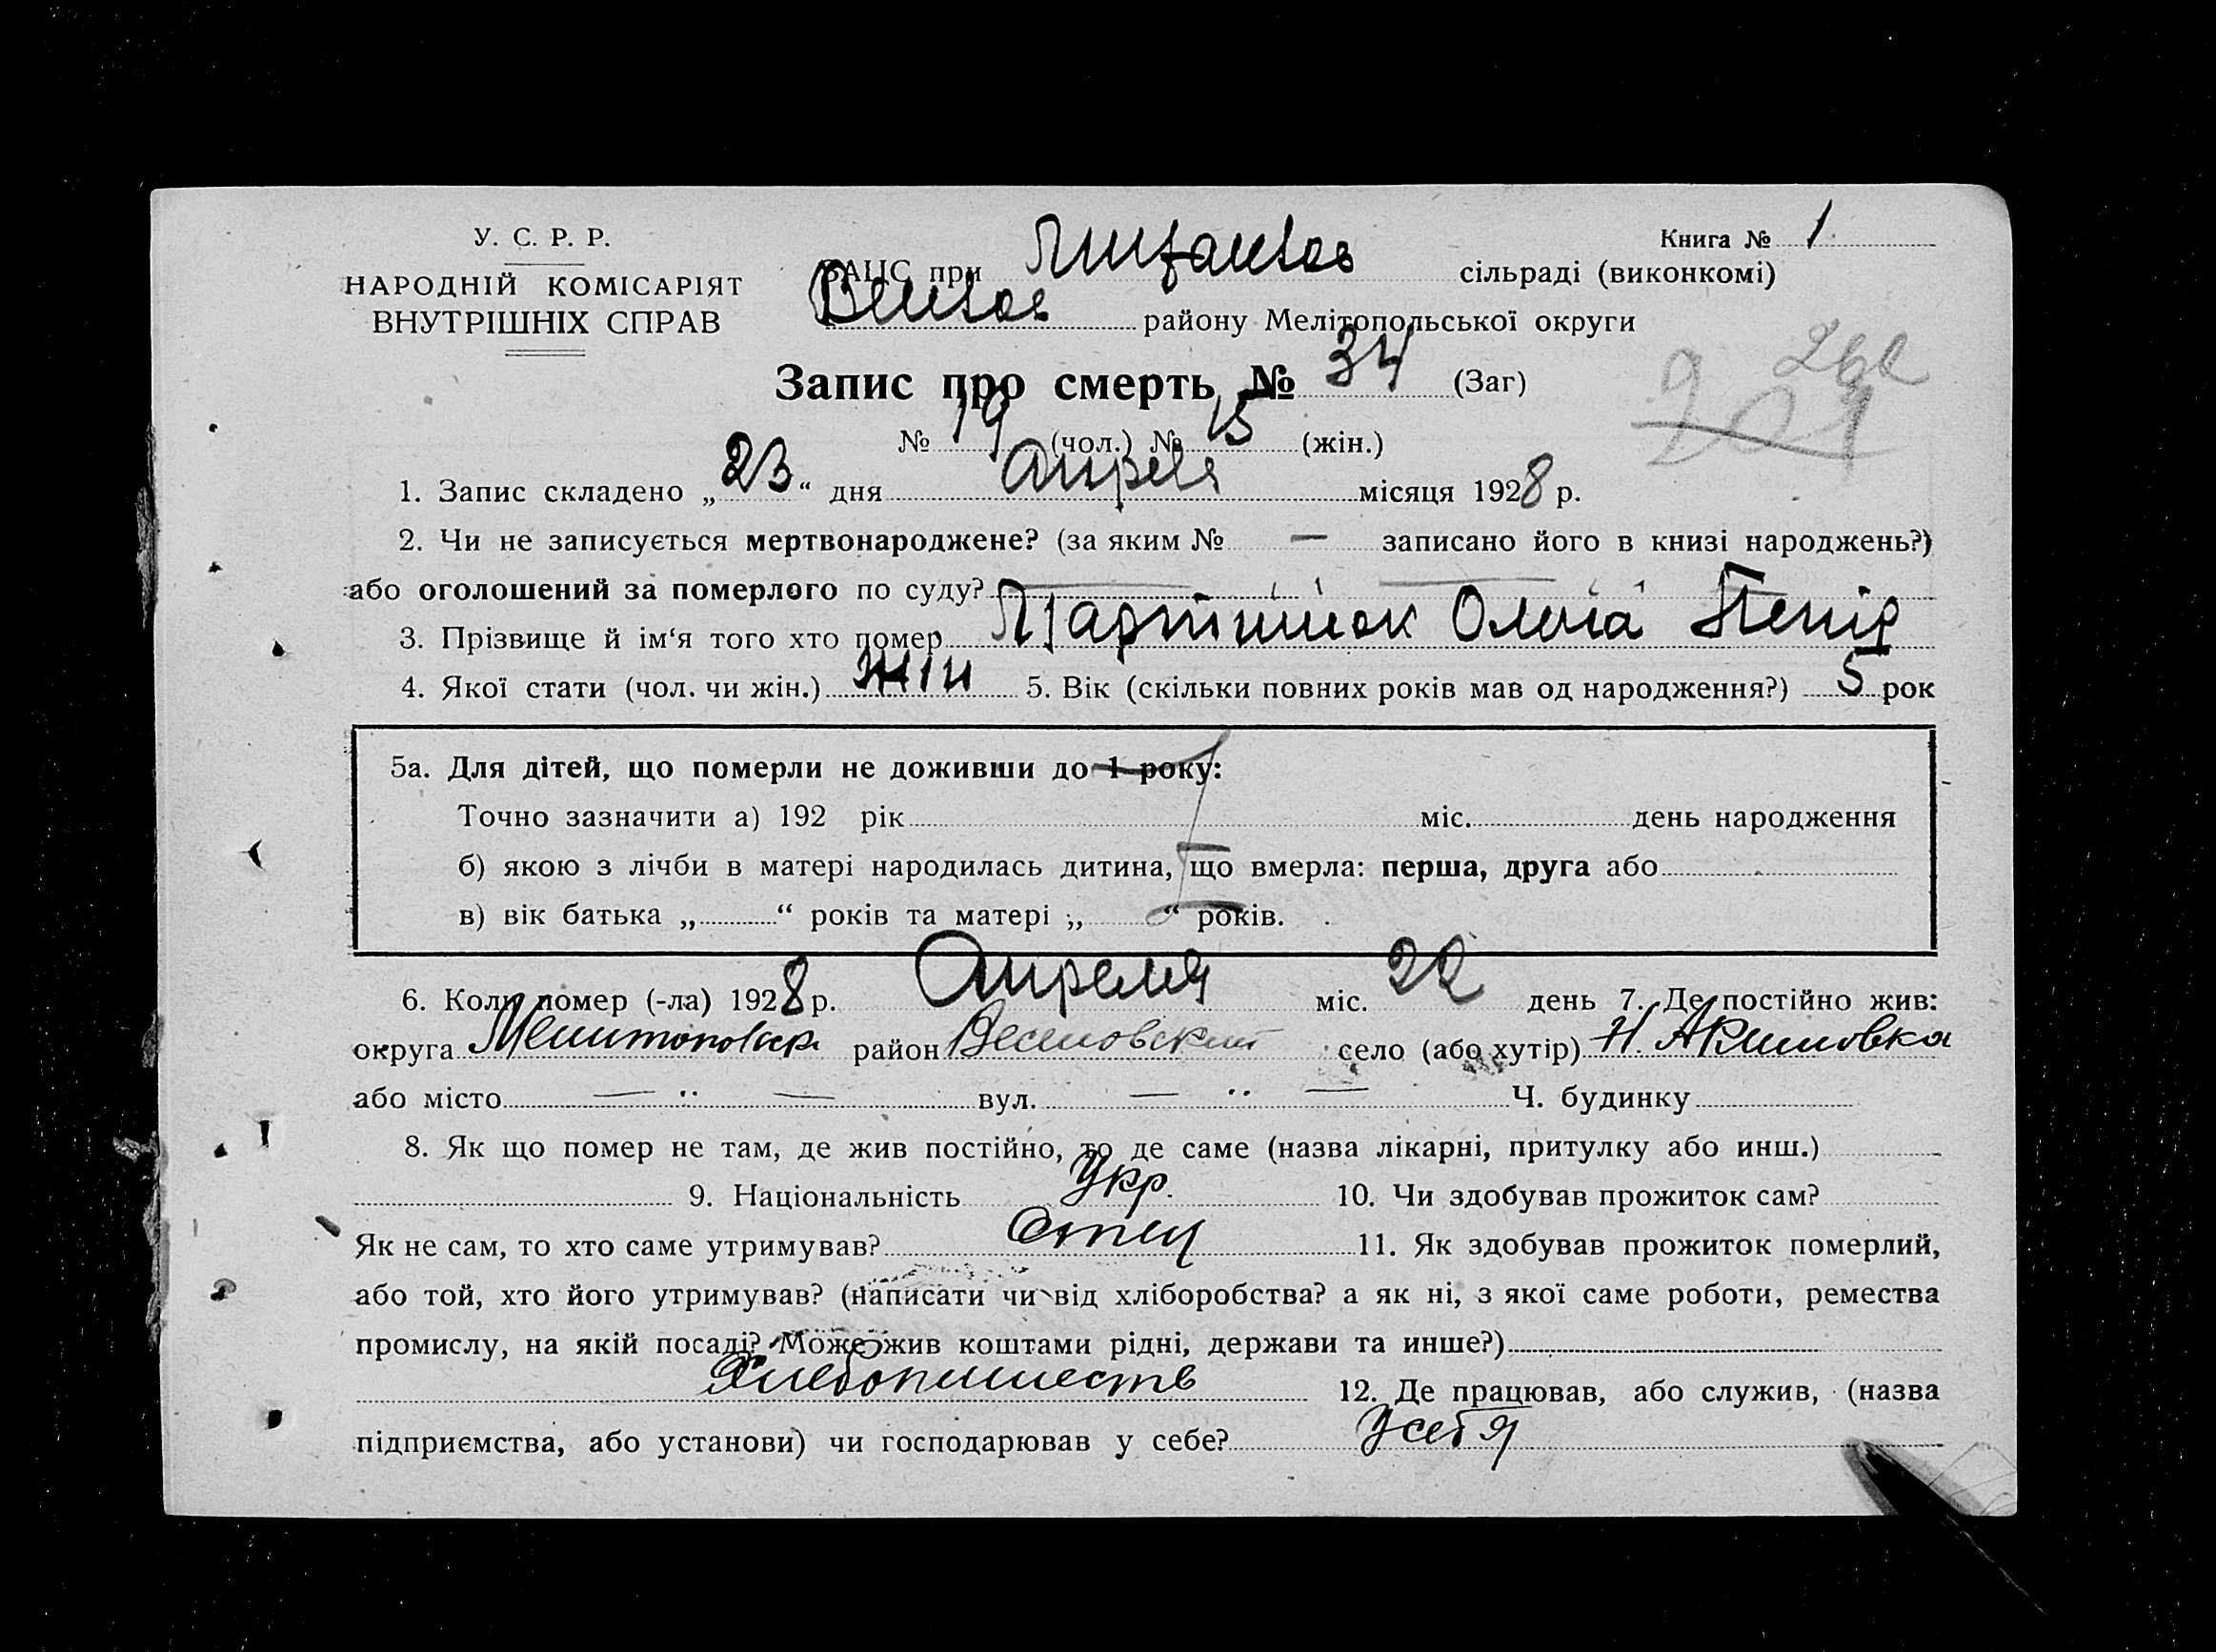 У. С. Р. Р.
НАРОДНІЙ КОМІСАРІЯТ
ВНУТРІШНІХ СПРАВ
Книга № 1
ЗАГС при сільраді (виконкомі)
району Мелітопольської округи
Запис про смерть № 34 (Заг)
№ 19 (чол.) № 15 (жін.)
1. Запис складено „23“ дня Апреля місяця 1928 р.
2. Чи не записується мертвонароджене? (за яким № — записано його в книзі народжень?)
або оголошений за померлого по суду?
3. Прізвище й ім‘я того хто помер
4. Якої стати (чол. чи жін.) жін 5. Вік (скільки повних років мав од народження?) 5 рок
5а. Для дітей, що померли не доживши до 1 року:
Точно зазначити а) 192 рік міс. день народження
б) якою з лічби в матері народилась дитина, що вмерла: перша, друга або
в) вік батька „ “ років та матері „ “ років.
6. Коли помер (-ла) 1928 р. Апреля міс. 22 день 7. Де постійно жив:
округа район Веселовский село (або хутір) Н. Акимовка
або місто — „ — вул. — „ — Ч. будинку
8. Як що помер не там, де жив постійно, то де саме (назва лікарні, притулку або инш.)
9. Національність Укр. 10. Чи здобував прожиток сам?
Як не сам, то хто саме утримував? Отец 11. Як здобував прожиток померлий,
або той, хто його утримував? (написати чи від хліборобства? а як ні, з якої саме роботи, ремества
промислу, на якій посаді? Може жив коштами рідні, держави та инше?)
12. Де працював, або служив, (назва
підприємства, або установи) чи господарював у себе? У себя